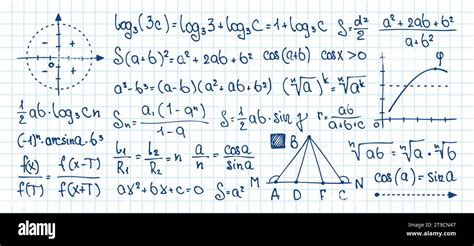 log₃(3c) = log₃3 + log₃c = 1 + log₃c   S = d²/2   a² + 2ab + b² / a + b²
+ +
0
- -
S(a+b)² = a² + 2ab + b²   cos(a+b)   cos x > 0   φ
a³ - b³ = (a-b)(a² + ab + b²)   (ⁿ√a)ᵏ = ⁿ√aᵏ
1/2 ab · log₃ cn   Sₙ = a₁(1 - qⁿ) / 1 - a   S = 1/2 ab · sin y   r = ab / a+b+c   0
(-1)ⁿ · arcsin a · b³   B   ⁿ√ab = ⁿ√a · ⁿ√b
f(x) / f(T) = f(x-T) / f(x+T)   l₁/R₁ = l₂/R₂ = n   a/n = cos a / sin a
ax² + bx + c = 0   S = a²   M A D F C N   cos(a) = sin a
alamy
Image ID: 2T9CN47
www.alamy.com